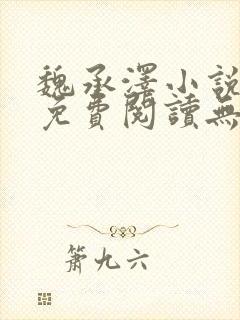 魏承澤小說
免費閱讀無
簫九六